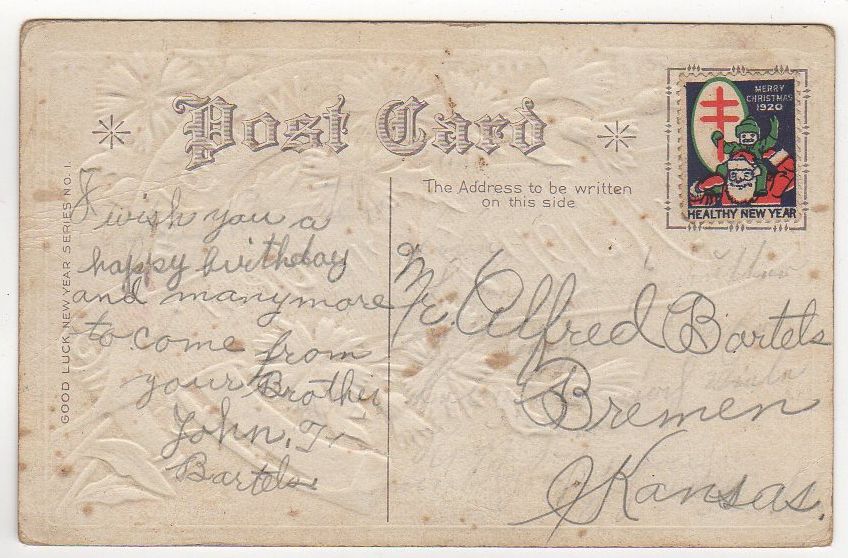 Post Card
The Address to be written
on this side
MERRY
CHRISTMAS
1920
HEALTHY NEW YEAR
GOOD LUCK NEW YEAR SERIES NO. 1.
I wish you a
happy birthday
and many more
to come from
your Brother
John. Jr
Bartels.
Mr. Alfred Bartels
Bremen
Kansas.